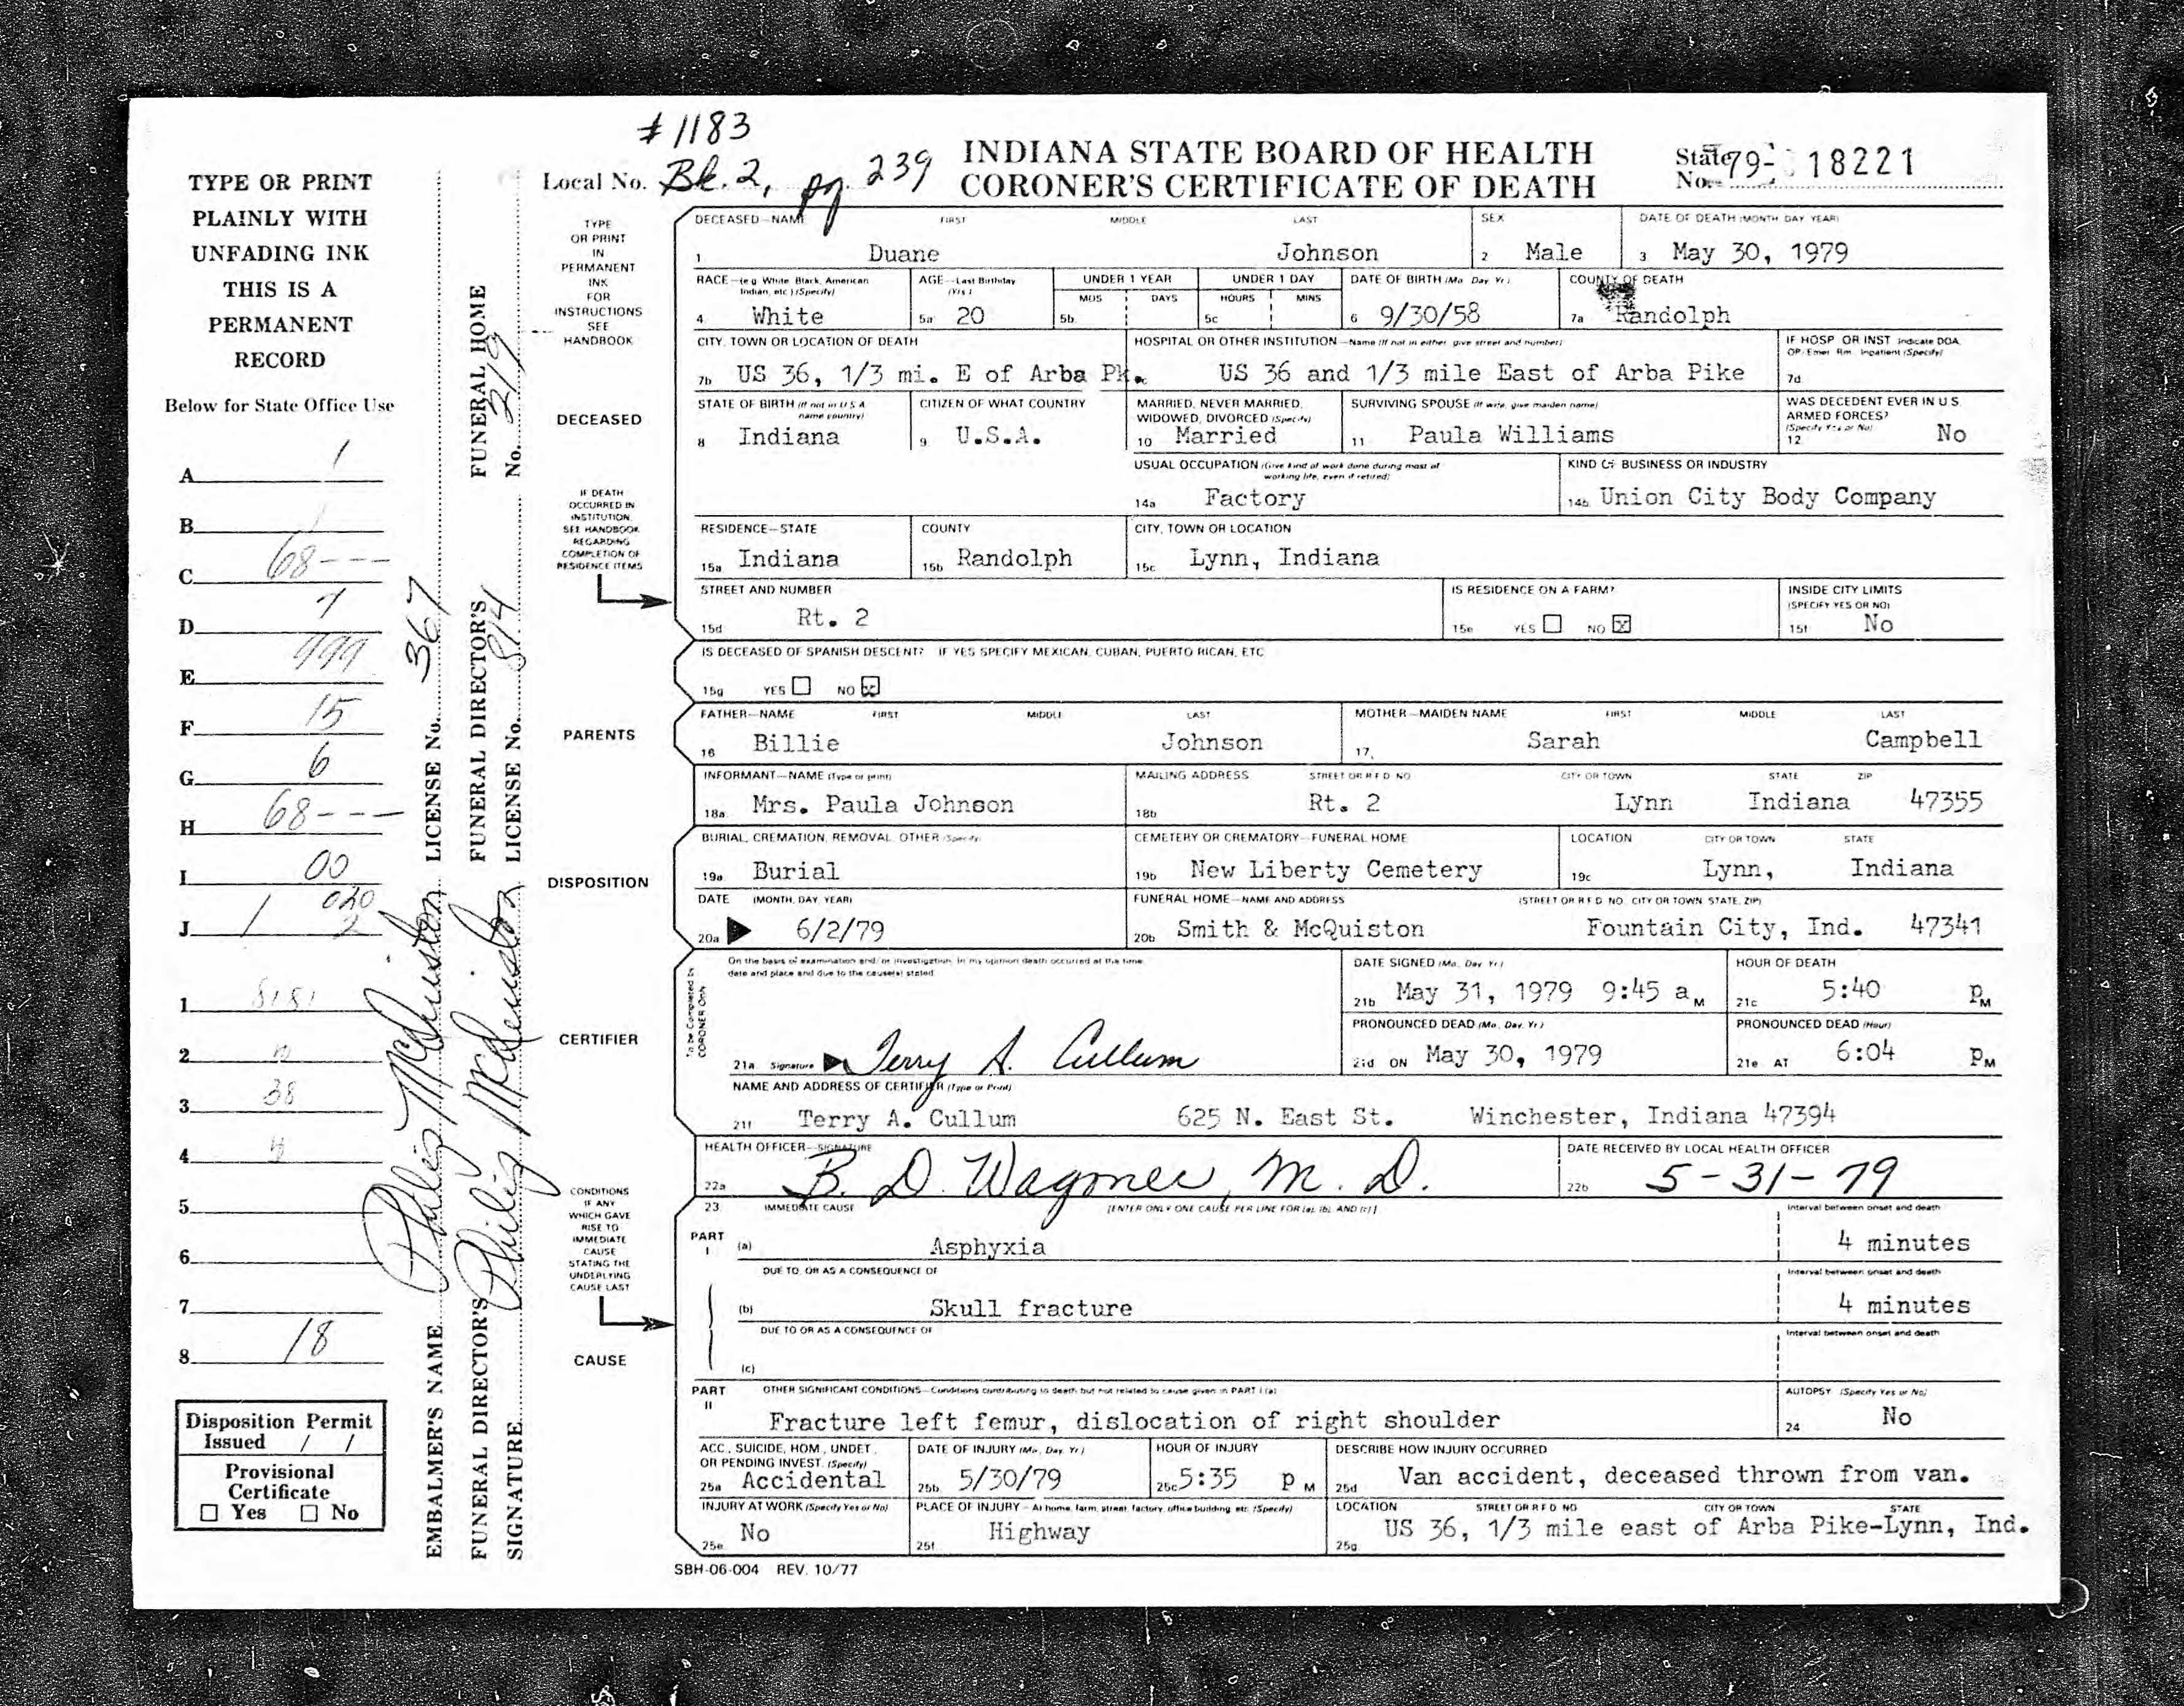 # 1183
Local No. Bk. 2, pg. 239
INDIANA STATE BOARD OF HEALTH
CORONER'S CERTIFICATE OF DEATH
State No. 79- 18221
TYPE OR PRINT
PLAINLY WITH
UNFADING INK
THIS IS A
PERMANENT
RECORD
Below for State Office Use
A 1
B
C 68---
D 7
E 999
F 15
G 6
H 68---
I 00
J 1 020 2
1 8181
2
3 38
4
5
6
7
8 18
Disposition Permit
Issued / /
Provisional
Certificate
☐ Yes ☐ No
EMBALMER'S NAME Philip McQuiston LICENSE No. 367
FUNERAL DIRECTOR'S SIGNATURE Philip McQuiston FUNERAL DIRECTOR'S LICENSE No. 814 FUNERAL HOME No. 219
TYPE
OR PRINT
IN
PERMANENT
INK
FOR
INSTRUCTIONS
SEE
HANDBOOK
DECEASED
IF DEATH
OCCURRED IN
INSTITUTION
SEE HANDBOOK
REGARDING
COMPLETION OF
RESIDENCE ITEMS
PARENTS
DISPOSITION
CERTIFIER
CONDITIONS
IF ANY
WHICH GAVE
RISE TO
IMMEDIATE
CAUSE
STATING THE
UNDERLYING
CAUSE LAST
CAUSE
DECEASED—NAME FIRST MIDDLE LAST SEX DATE OF DEATH (MONTH DAY YEAR)
1 Duane Johnson 2 Male 3 May 30, 1979
RACE—(e.g. White, Black, American Indian, etc.) (Specify) AGE—Last Birthday (Yrs.) UNDER 1 YEAR UNDER 1 DAY DATE OF BIRTH (Mo. Day Yr.) COUNTY OF DEATH
MOS DAYS HOURS MINS
4 White 5a 20 5b 5c 6 9/30/58 7a Randolph
CITY, TOWN OR LOCATION OF DEATH HOSPITAL OR OTHER INSTITUTION—Name (If not in either, give street and number) IF HOSP OR INST Indicate DOA, OP/Emer. Rm. Inpatient (Specify)
7b US 36, 1/3 mi. E of Arba Pk. 7c US 36 and 1/3 mile East of Arba Pike 7d
STATE OF BIRTH (If not in U.S.A. name country) CITIZEN OF WHAT COUNTRY MARRIED, NEVER MARRIED, WIDOWED, DIVORCED (Specify) SURVIVING SPOUSE (If wife, give maiden name) WAS DECEDENT EVER IN U.S. ARMED FORCES? (Specify Yes or No)
8 Indiana 9 U.S.A. 10 Married 11 Paula Williams 12 No
USUAL OCCUPATION (Give kind of work done during most of working life, even if retired) KIND OF BUSINESS OR INDUSTRY
14a Factory 14b Union City Body Company
RESIDENCE—STATE COUNTY CITY, TOWN OR LOCATION
15a Indiana 15b Randolph 15c Lynn, Indiana
STREET AND NUMBER IS RESIDENCE ON A FARM? INSIDE CITY LIMITS (SPECIFY YES OR NO)
15d Rt. 2 15e YES ☐ NO ☒ 15f No
IS DECEASED OF SPANISH DESCENT? IF YES SPECIFY MEXICAN, CUBAN, PUERTO RICAN, ETC
15g YES ☐ NO ☒
FATHER—NAME FIRST MIDDLE LAST MOTHER—MAIDEN NAME FIRST MIDDLE LAST
16 Billie Johnson 17. Sarah Campbell
INFORMANT—NAME (Type or print) MAILING ADDRESS STREET OR R F D NO CITY OR TOWN STATE ZIP
18a Mrs. Paula Johnson 18b Rt. 2 Lynn Indiana 47355
BURIAL, CREMATION, REMOVAL, OTHER (Specify) CEMETERY OR CREMATORY—FUNERAL HOME LOCATION CITY OR TOWN STATE
19a Burial 19b New Liberty Cemetery 19c Lynn, Indiana
DATE (MONTH, DAY, YEAR) FUNERAL HOME—NAME AND ADDRESS (STREET OR R F D NO, CITY OR TOWN, STATE, ZIP)
20a 6/2/79 20b Smith & McQuiston Fountain City, Ind. 47341
To be Completed by CORONER Only
On the basis of examination and/or investigation, in my opinion death occurred at the time date and place and due to the cause(s) stated
DATE SIGNED (Mo. Day Yr.) HOUR OF DEATH
21b May 31, 1979 9:45 a M 21c 5:40 P M
PRONOUNCED DEAD (Mo. Day. Yr.) PRONOUNCED DEAD (Hour)
21a Signature Terry A. Cullum 21d ON May 30, 1979 21e AT 6:04 P M
NAME AND ADDRESS OF CERTIFIER (Type or Print)
21f Terry A. Cullum 625 N. East St. Winchester, Indiana 47394
HEALTH OFFICER—SIGNATURE DATE RECEIVED BY LOCAL HEALTH OFFICER
22a B. D. Wagoner, M. D. 22b 5-31-79
23 IMMEDIATE CAUSE [ENTER ONLY ONE CAUSE PER LINE FOR (a), (b), AND (c)] Interval between onset and death
PART I (a) Asphyxia 4 minutes
DUE TO, OR AS A CONSEQUENCE OF Interval between onset and death
(b) Skull fracture 4 minutes
DUE TO OR AS A CONSEQUENCE OF Interval between onset and death
(c)
PART II OTHER SIGNIFICANT CONDITIONS—Conditions contributing to death but not related to cause given in PART I (a) AUTOPSY (Specify Yes or No)
Fracture left femur, dislocation of right shoulder 24 No
ACC., SUICIDE, HOM., UNDET., OR PENDING INVEST. (Specify) DATE OF INJURY (Mo., Day, Yr.) HOUR OF INJURY DESCRIBE HOW INJURY OCCURRED
25a Accidental 25b 5/30/79 25c 5:35 P M 25d Van accident, deceased thrown from van.
INJURY AT WORK (Specify Yes or No) PLACE OF INJURY—At home, farm, street, factory, office building, etc. (Specify) LOCATION STREET OR R F D NO CITY OR TOWN STATE
25e No 25f Highway 25g US 36, 1/3 mile east of Arba Pike-Lynn, Ind.
SBH-06-004 REV. 10/77